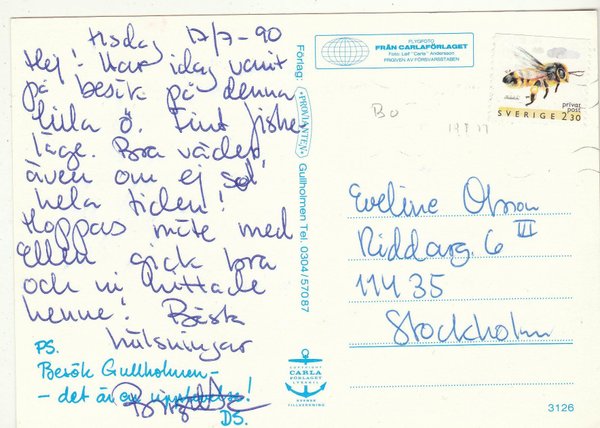 tisdag 17/7-90
Hej! Har idag varit
på besök på denna
lilla ö. Fint fiske
läge. Bra väder
även om ej sol
hela tiden!
Hoppas möte med
Ellen gick bra
och ni hittade
henne! Bästa
hälsningar
PS.
Besök Gullholmen-
- det är en upplevelse!
DS.
Förlag: "PROVIANTEN" Gullholmen Tel. 0304/57087
FLYGFOTO
FRÅN CARLAFÖRLAGET
Foto: Leif "Carla" Andersson
FRIGIVEN AV FÖRSVARSSTABEN
privat
post
SVERIGE 2.30
Bo
Eveline Olsson
Riddarg. 6 III
114 35
Stockholm
COPYRIGHT
CARLA
FÖRLAGET
LYSEKIL
SVENSK
TILLVERKNING
3126